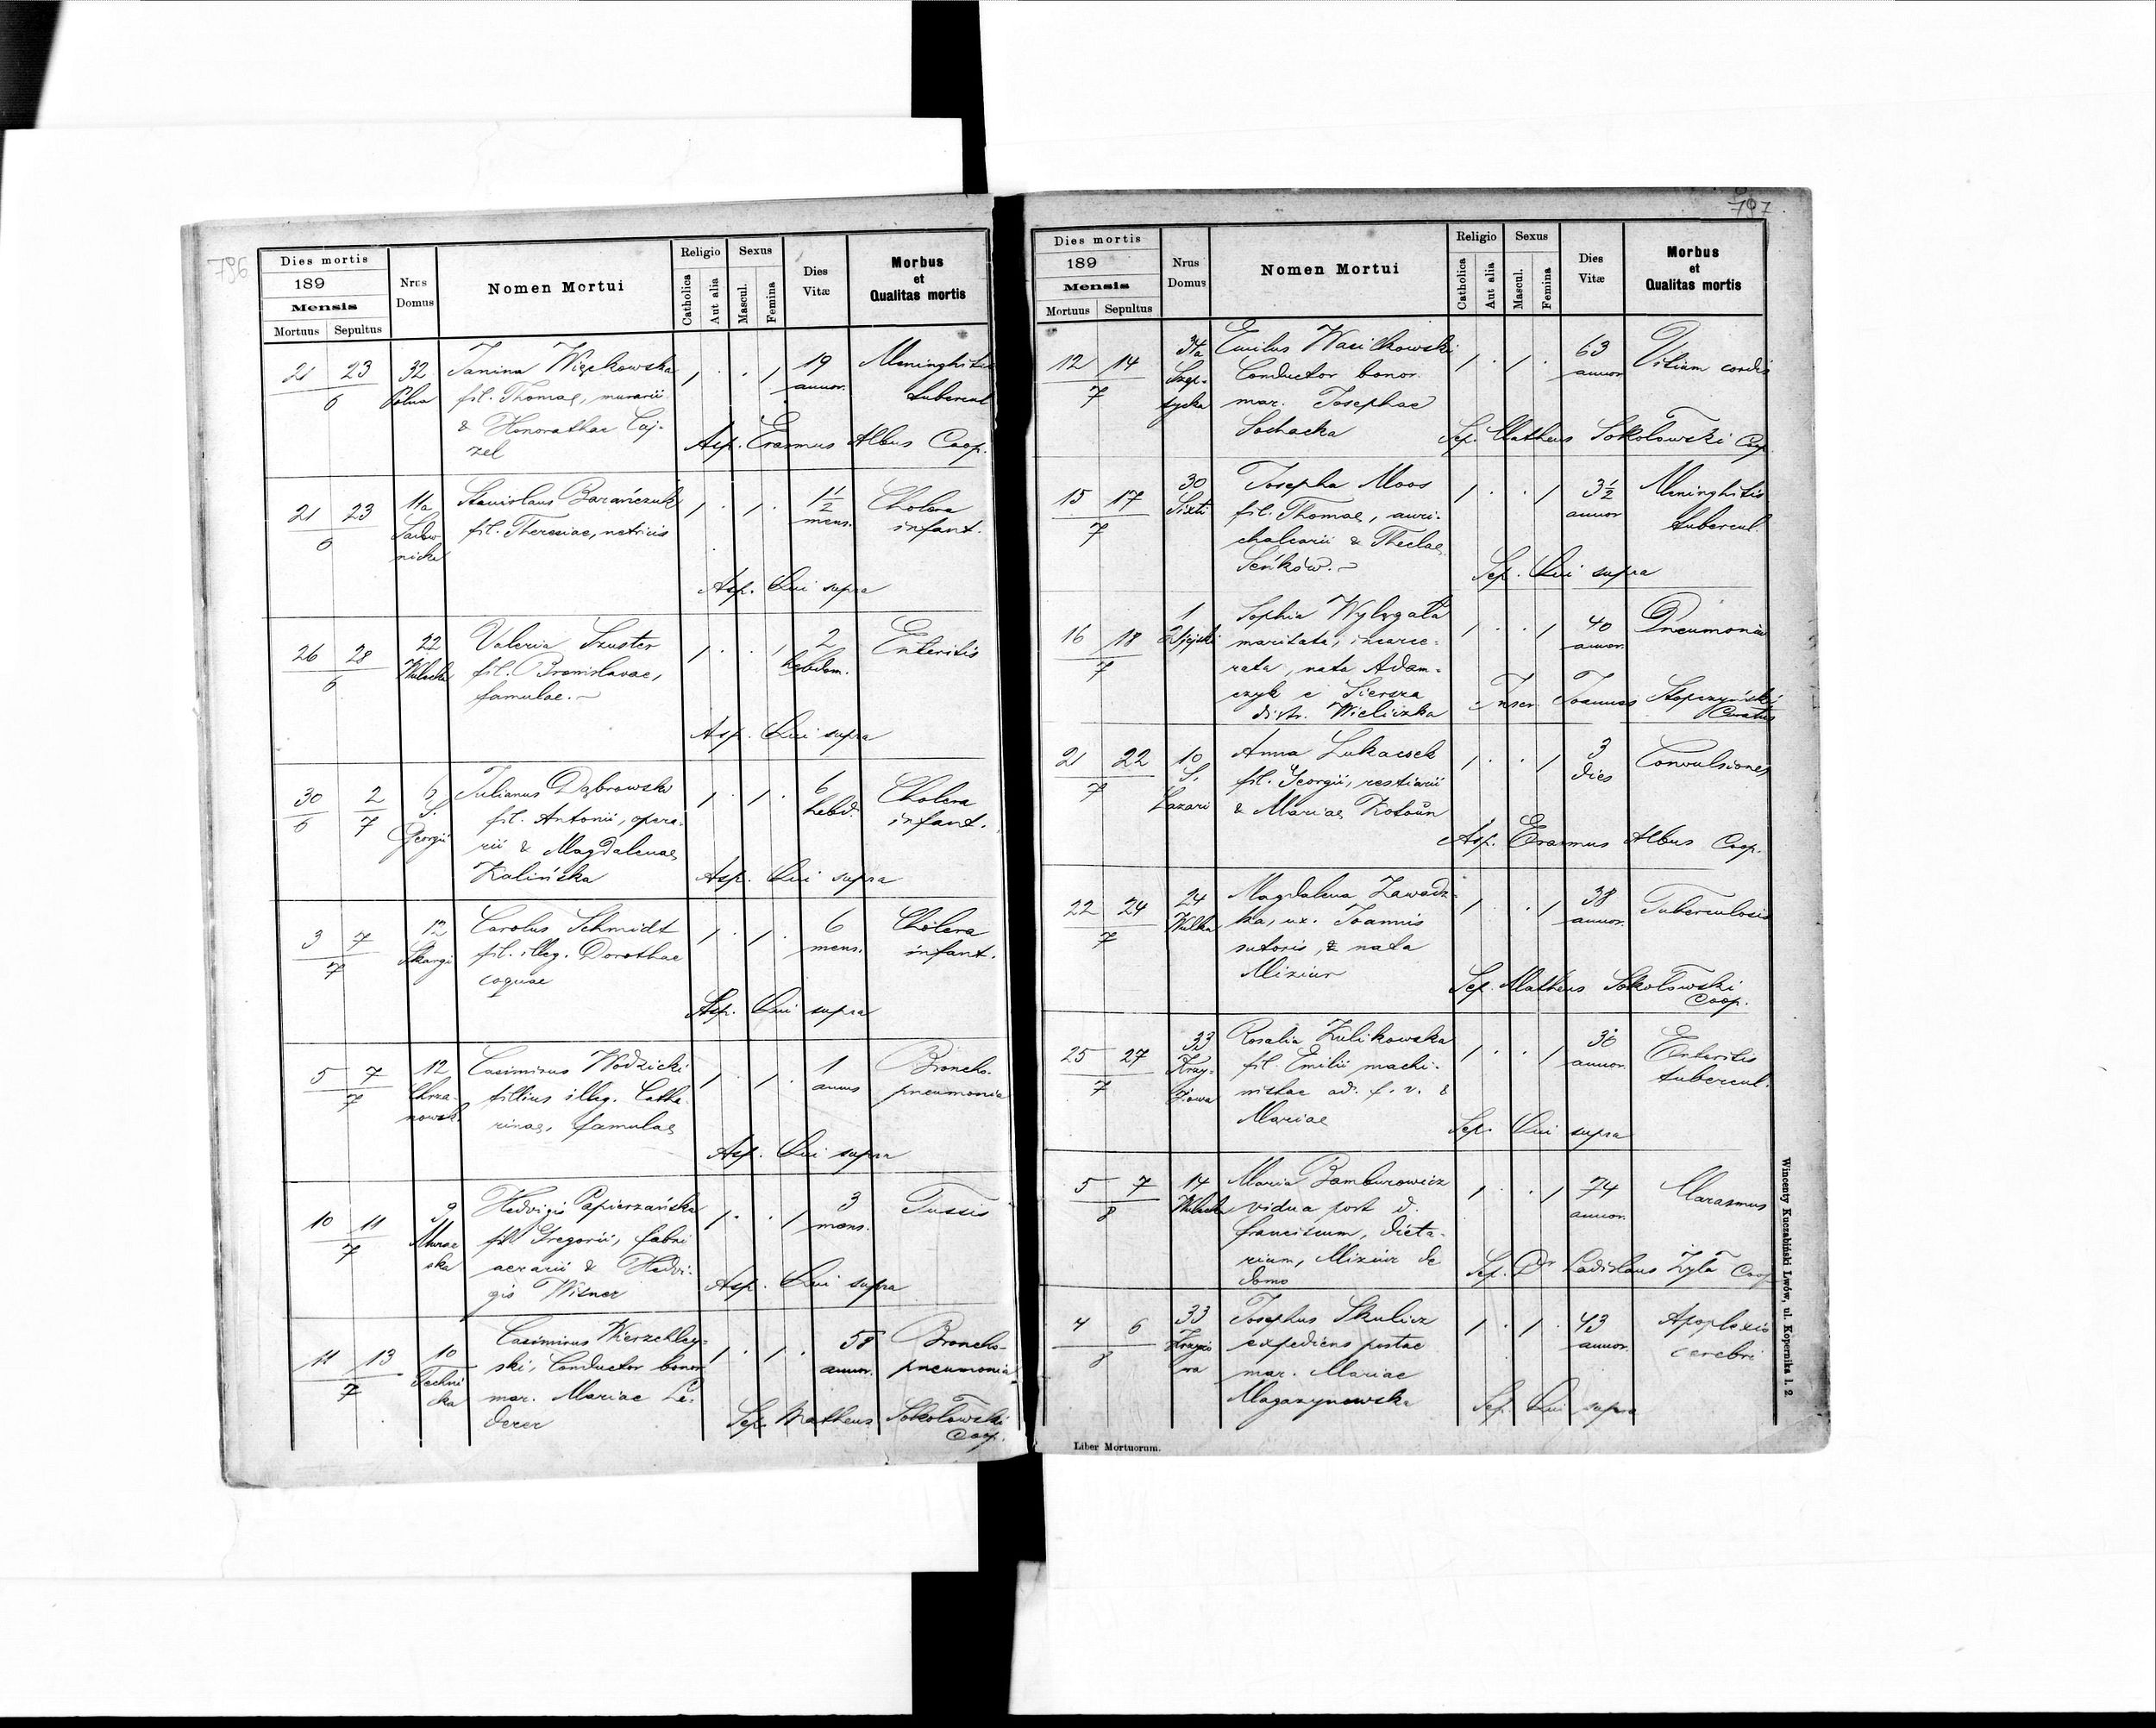 796
Dies mortis
189
Mensis
Mortuus Sepultus
Nrus Domus
Nomen Mortui
Religio
Catholica
Aut alia
Sexus
Mascul.
Femina
Dies Vitæ
Morbus et Qualitas mortis
21 23 32 Janina Więckowska 1 . . 1 19 Meninghitis
6 Polna fil. Thomae, murarii annor. tubercul
& Honorathae Caj-
zel Asp. Erasmus Albus Coop.
21 23 11a Stanislaus Barańczuk 1 . 1 . 1½ Cholera
6 Sadow- fil. Theresiae, nutricis mens. infant.
nicka
Asp. Qui supra
26 28 22 Valeria Szuster 1 . . 1 2 Enteritis
6 Wulecka fil. Bronislavae, hebdom.
famulae.
Asp. Qui supra
30 2 6 Julianus Dąbrowski 1 . 1 . 6 Cholera
6 7 S. fil. Antonii, opera- hebd. infant.
Georgii rii & Magdalenae
Kalińska Asp. Qui supra
3 7 12 Carolus Schmidt 1 . 1 . 6 Cholera
7 Skargi fil. illeg. Dorothae mens. infant.
coquae
Asp. Qui supra
5 7 12 Casimirus Wodzicki 1 . 1 . 1 Broncho-
7 Chrza- fillius illeg. Catha- annus pneumonia
nowsk. rinae, famulae
Asp. Qui supra
10 11 9 Hedvigis Papierzańska 1 . . 1 3 Tussis
7 Murar fil Gregorii, fabri mens.
ska aerarii & Hedvi-
gis Wisner Asp. Qui supra
11 13 10 Casimirus Wierzchley- 1 . 1 . 58 Broncho-
7 Techni ski, Conductor bonor. annor. pneumonia
cka mar. Mariae Le-
derer Sep. Matheus Sokołowski
Coop.
797
Dies mortis
189
Mensis
Mortuus Sepultus
Nrus Domus
Nomen Mortui
Religio
Catholica
Aut alia
Sexus
Mascul.
Femina
Dies Vitæ
Morbus et Qualitas mortis
12 14 34a Emilus Wasilkowski 1 . 1 . 63 Vitium cordis
7 Szep- Conductor bonor. annor
tycka mar. Josephae
Sochacka Sep. Matheus Sokołowski Coop
15 17 30 Josepha Moos 1 . . 1 3½ Meninghitis
7 Sixti fil. Thomae, auri- annor tubercul
chalcarii & Theclae
Seńków. Sep. Qui supra
16 18 1 Sophia Wylęgała 1 . . 1 40 Pneumonia
7 maritata, incarce- annor.
rata, nata Adam-
czyk e Siersza Inscr. Joannes Stopczyński
distr. Wieliczka Curatus
21 22 10 Anna Lukacsek 1 . . 1 3 Convulsiones
7 S. fil. Georgii, restiarii dies
Lazari & Mariae Kotoŭn
Asp. Erasmus Albus Coop.
22 24 24 Magdalena Zawadz- 1 . 1 38 Tuberculosis
7 Wulka ka, ux. Joannis annor.
sutoris, & nata
Miziur Sep. Matheus Sokołowski
Coop.
25 27 33 Rosalia Kulikowska 1 . . 1 36 Enteritis
7 Krzy- fil. Emilii machi- annor. tubercul.
żowa nistae ad. f. v. &
Mariae Sep. Qui supra
5 7 14 Maria Bamburowicz 1 . 1 74 Marasmus
8 Wulecka vidua post d. annor.
Franciscum, dieta-
rium, Miziur de Sep. Dr Ladislaus Żyła Coop
domo
4 6 33 Josephus Skulicz 1 . 1 . 43 Apoplexis
8 Krzyżo expediens postae annor. cerebri
wa mar. Mariae
Magazynowska Sep. Qui supra
Liber Mortuorum.
Wincenty Kuczabiński Lwów, ul. Kopernika l. 2